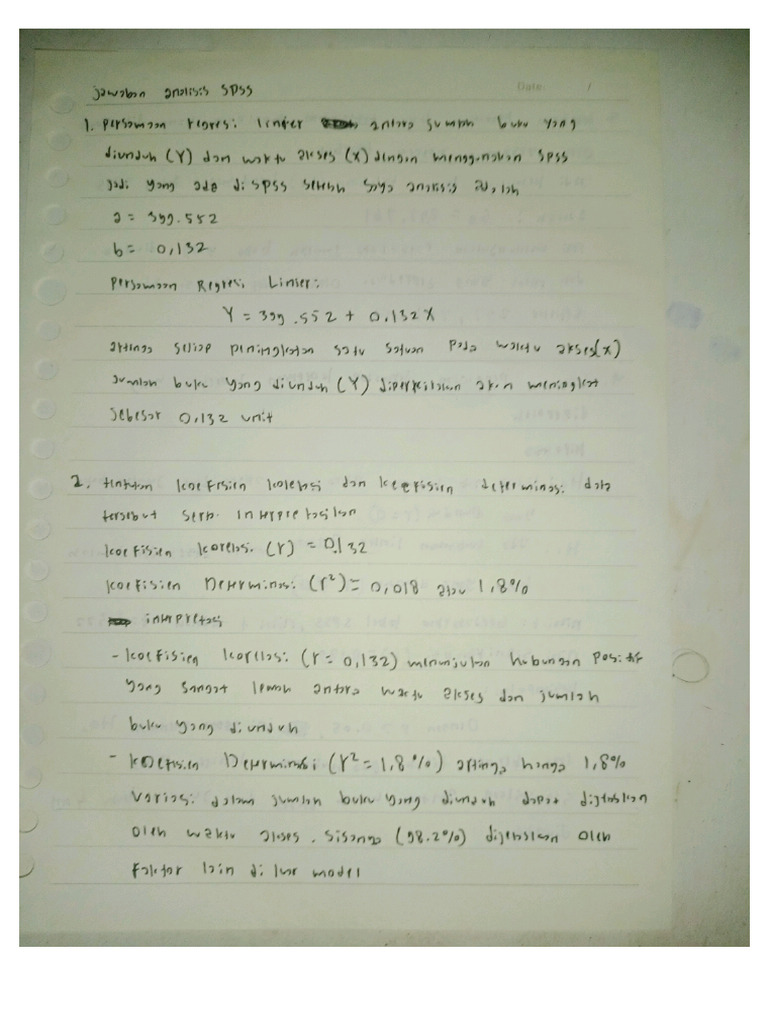 Jawaban analisis SPSS
Date: /
1. Persamaan regresi linier antara jumlah buku yang
diunduh (Y) dan waktu akses (X) dengan menggunakan SPSS
jadi yang ada di SPSS setelah saya analisis adalah
a = 399.552
b = 0,132
Persamaan Regresi Linier:
Y = 399.552 + 0.132X
artinya setiap peningkatan satu satuan pada waktu akses(x)
jumlah buku yang diunduh (Y) diperkirakan akan meningkat
sebesar 0,132 unit
2. tentukan koefisien kolelasi dan koefisien determinasi data
tersebut serta interpretasikan
koefisien korelasi (r) = 0.132
koefisien Determinasi (r²) = 0,018 atau 1,8%
interpretasi
- koefisien korelasi (r = 0,132) menunjukan hubungan positif
yang sangat lemah antara waktu akses dan jumlah
buku yang diunduh
- koefisien Determinasi (r² = 1,8%) artinya hanya 1,8%
variasi dalam jumlah buku yang diunduh dapat dijelaskan
oleh waktu akses. sisanya (98.2%) dijelaskan oleh
faktor lain di luar model